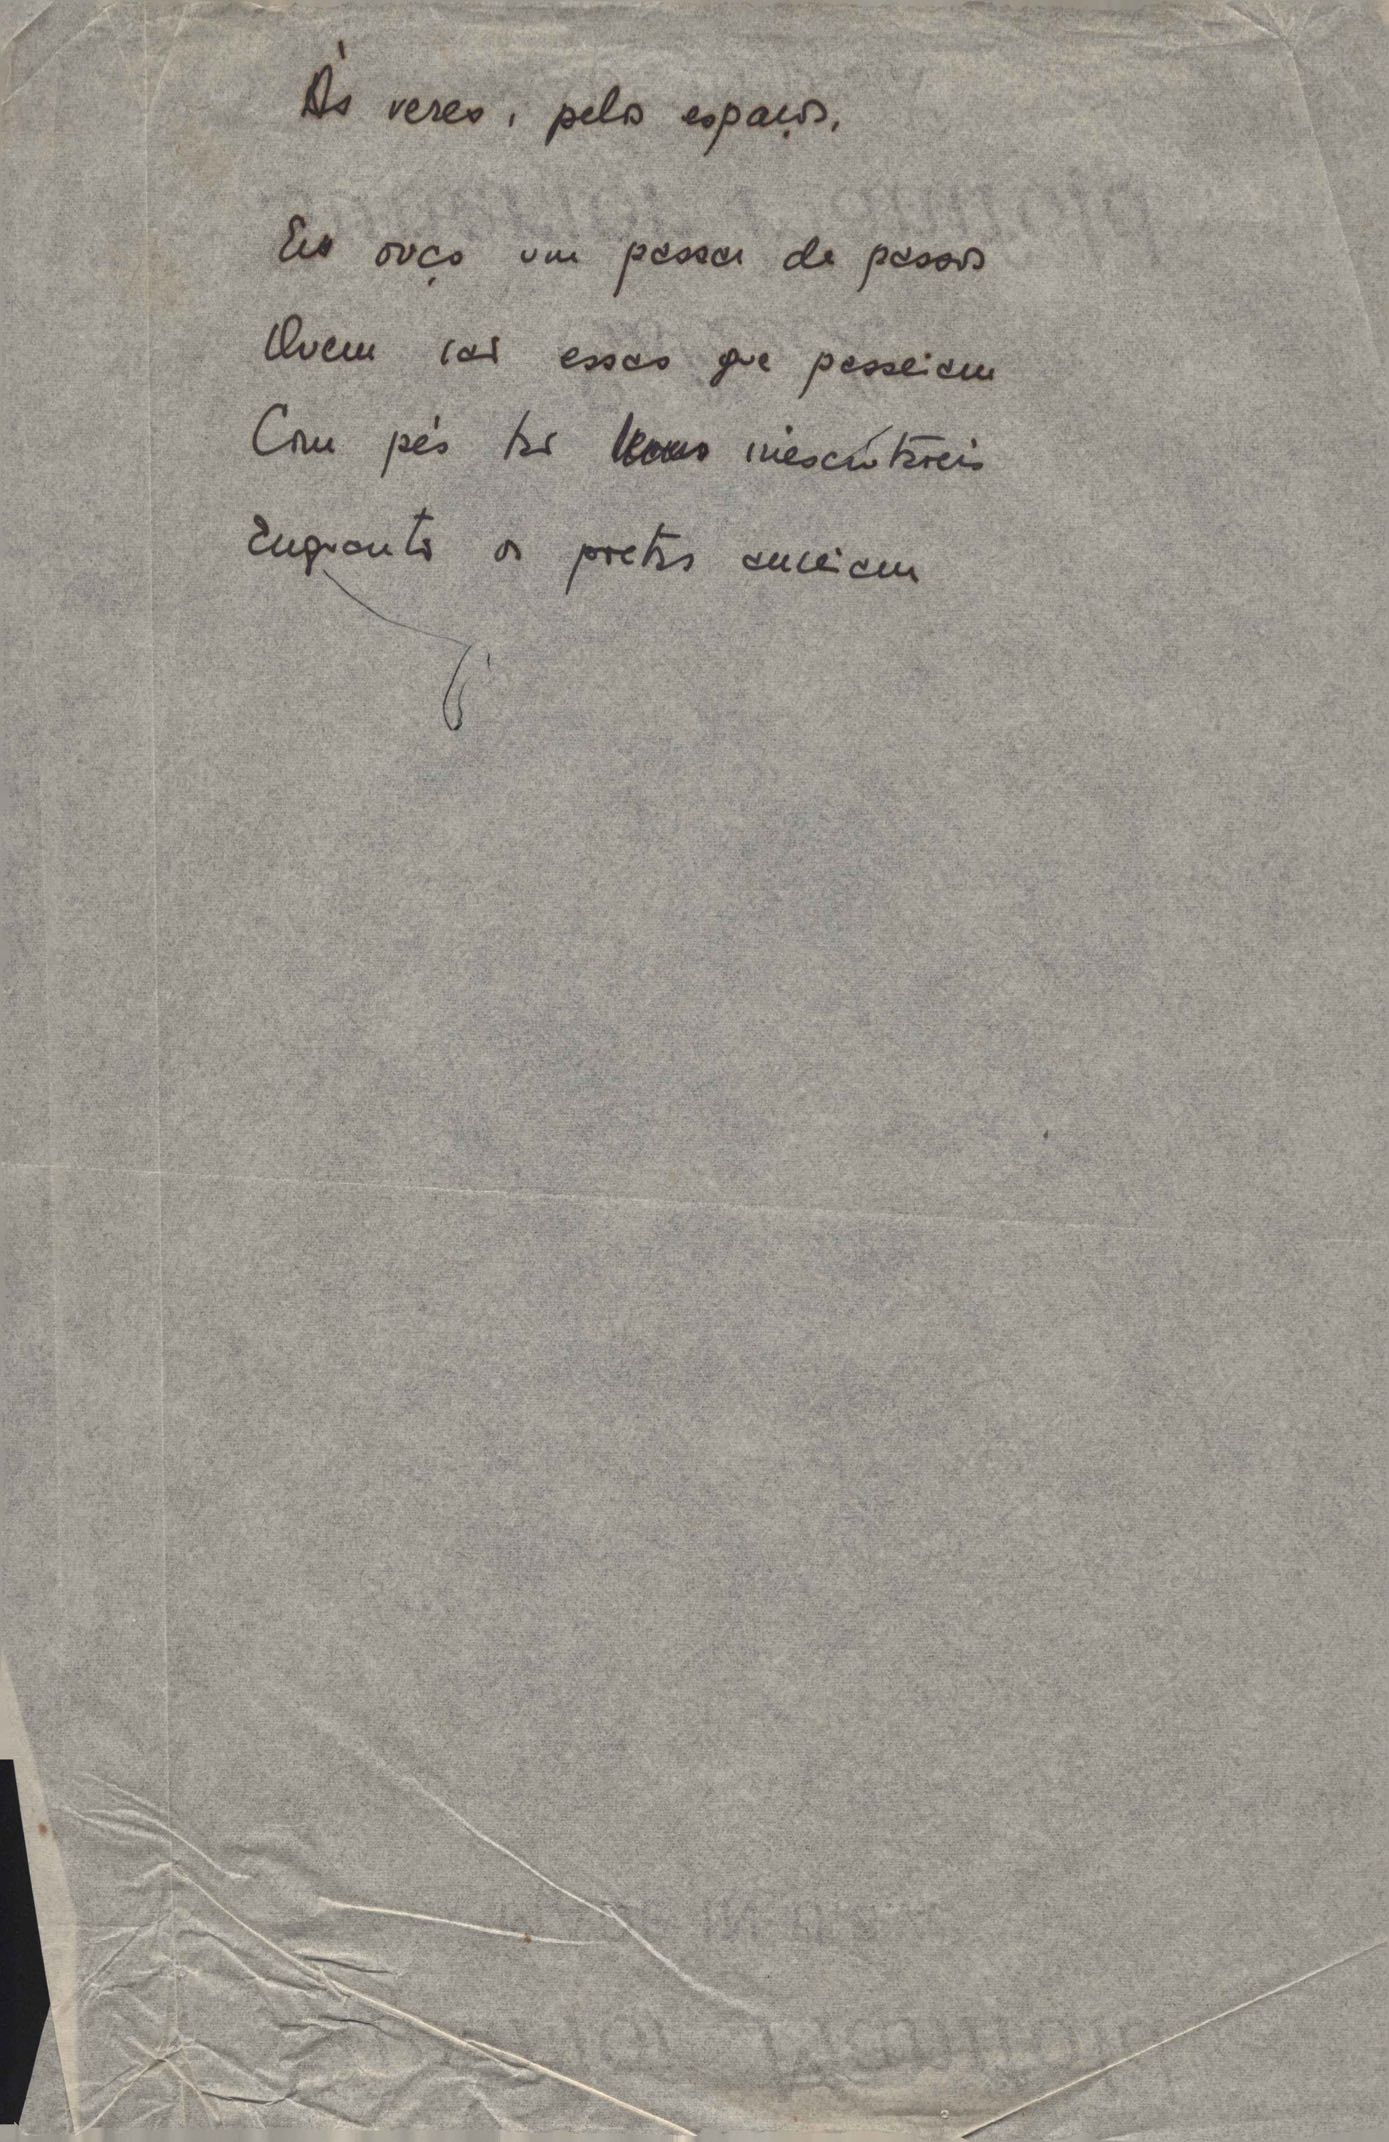 Às vezes, pelos espaços,
Eu ouço um passar de passos
Quem são esses que passeiam
Com pés tão inescrutáveis
Enquanto os poetas anseiam